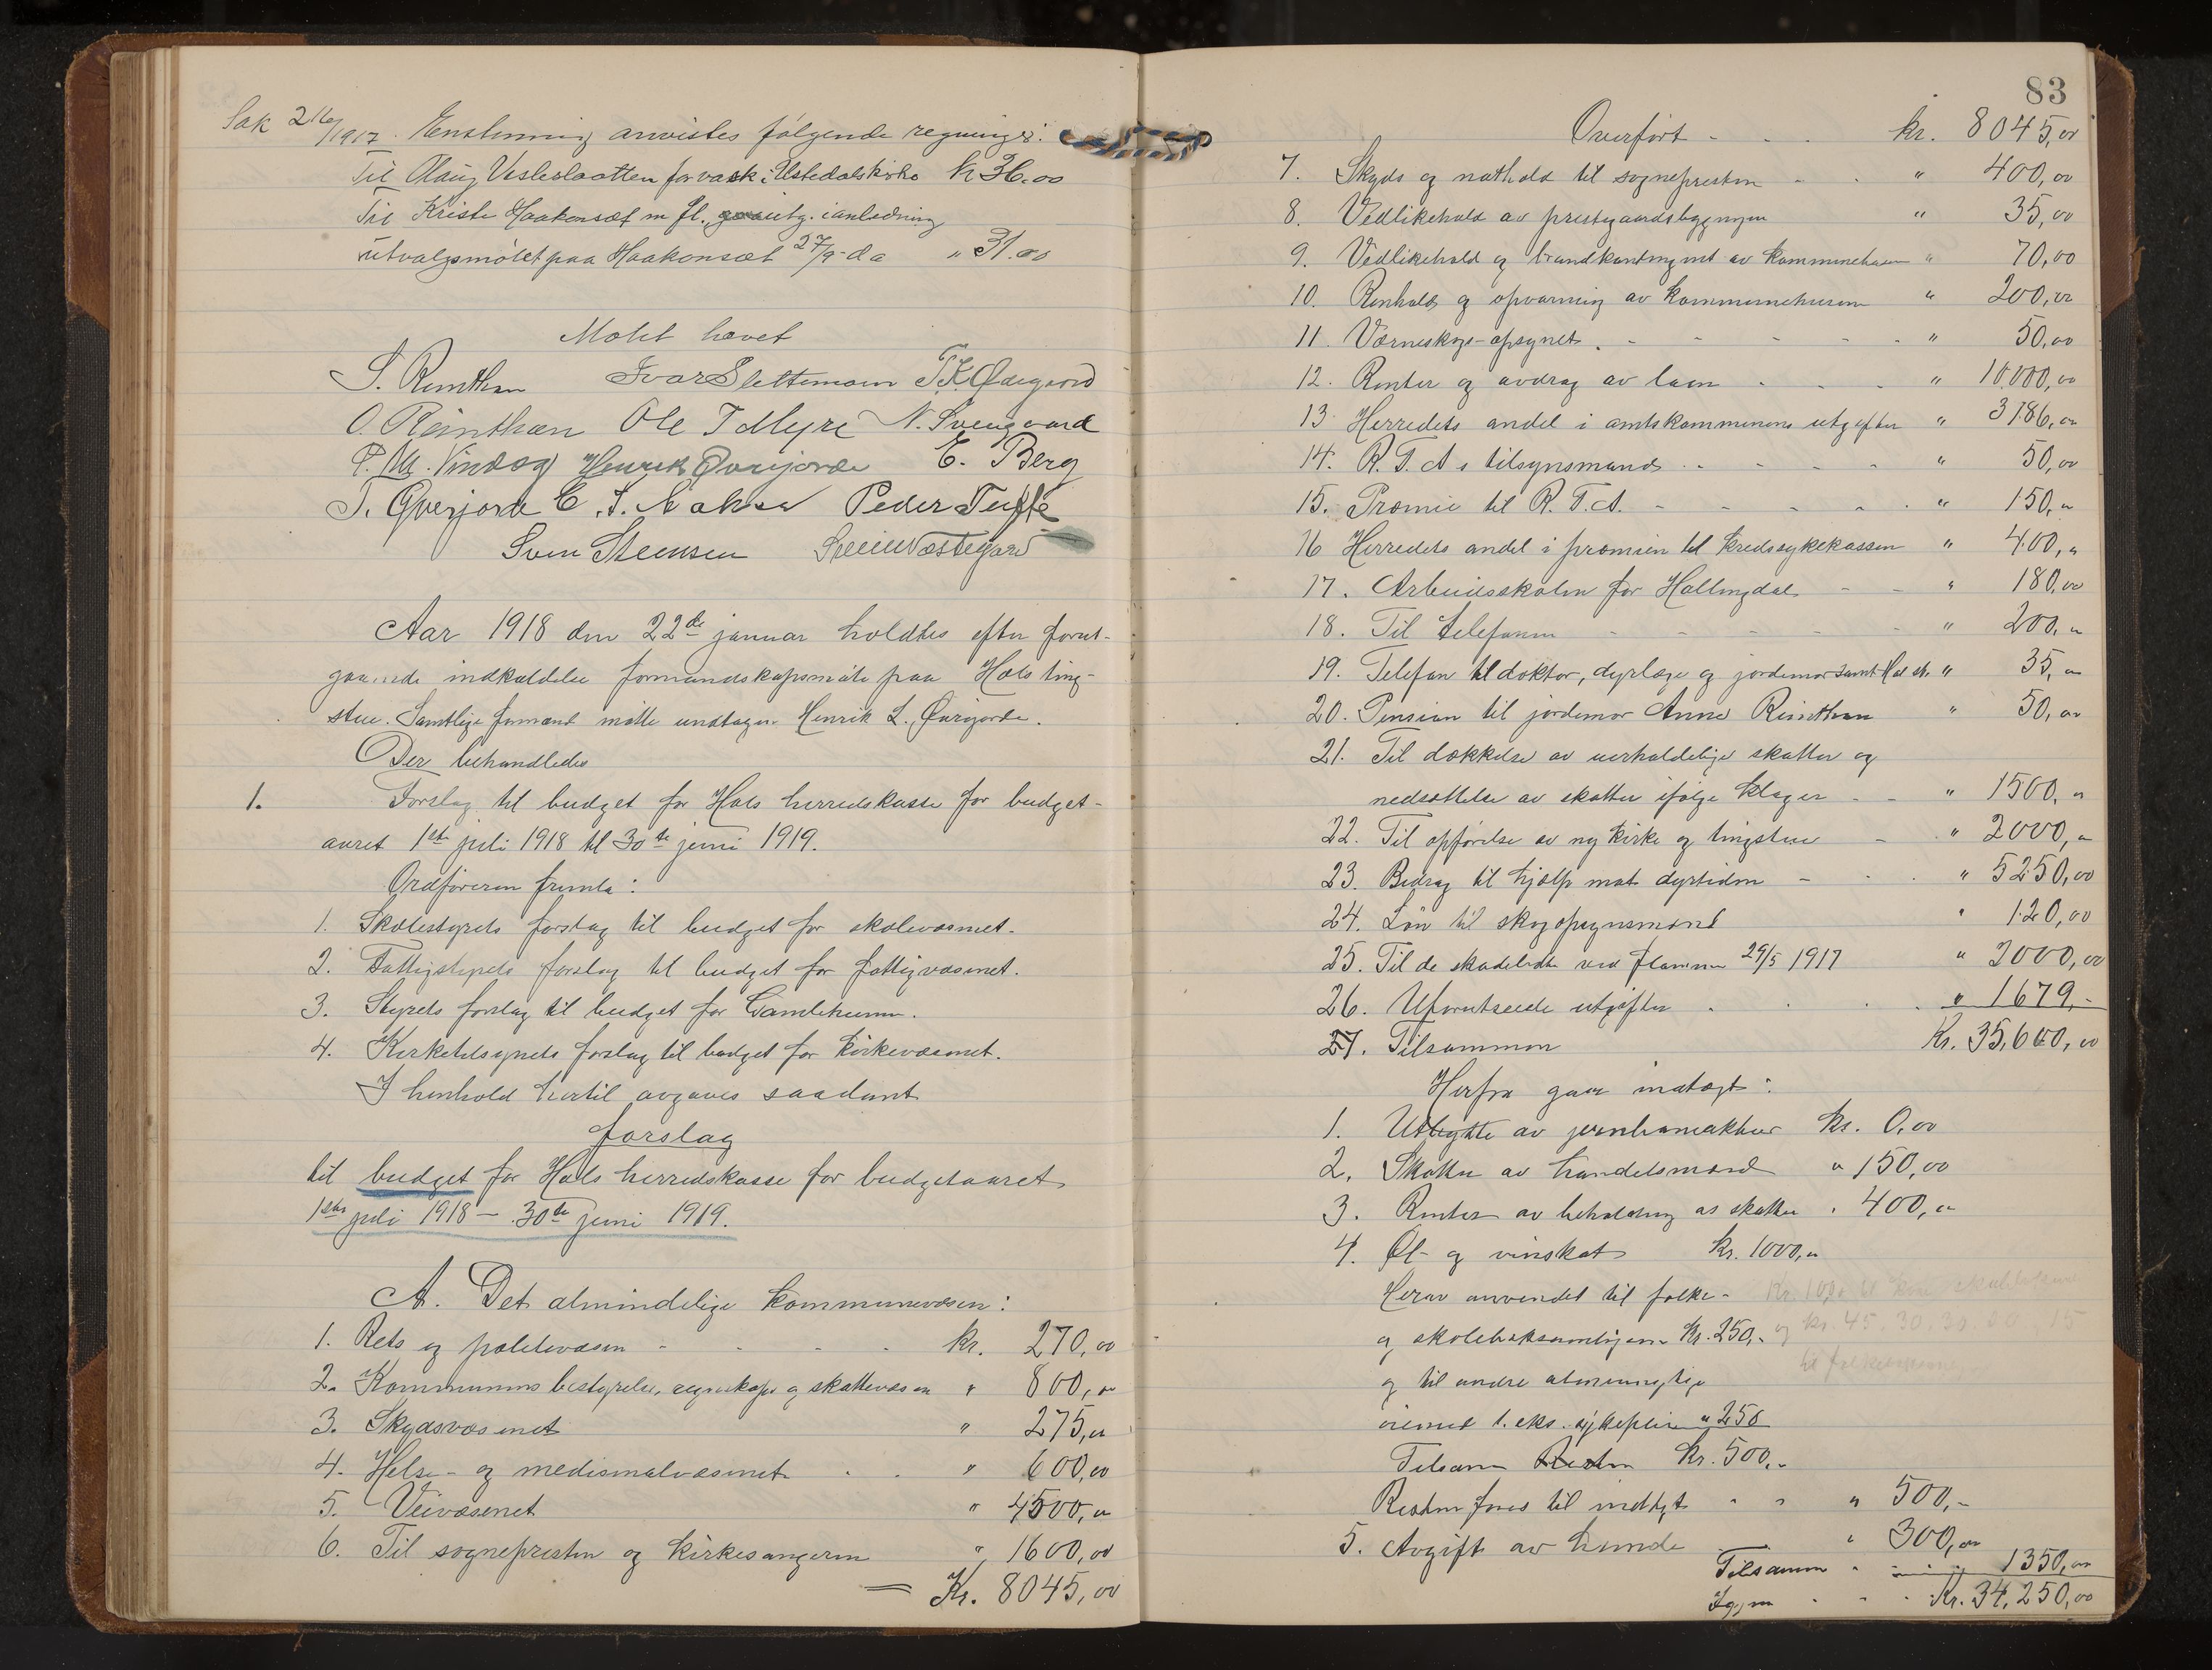 Sak 216/1917. Enstemmig anvistes følgende regninger:
Til Olaug Vesleslaatten for vask i Ustedalskirke kr 36.00
Til Kristi Haakonset m fl., utg. i anledning
utvalgsmøtet paa Haakonset 27/9 da " 31.00
Møtet hævet
S. Rimthun Ivar Slettemoen T.K. Ødegaard
O. Reinthun Ole T Myre N. Sveingaard
P. M. Vindeg Henrik Øvrejorde E. Berg
T. Øverjorde E. S. Peder Tufte
Sven Steensen Svein Vestegard
Aar 1918 den 22de januar holdtes efter forut-
gaaende indkaldelse formandskapsmøte paa Hols ting-
stue. Samtlige formænd møtte undtagen Henrik L. Øvrejorde.
Der behandledes
1. Forslag til budget for Hols herredskasse for budget-
aaret 1ste juli 1918 til 30te juni 1919.
Ordføreren fremla:
1. Skolestyrets forslag til budget for skolevæsenet.
2. Fattigstyrets forslag til budget for fattigvæsenet.
3. Styrets forslag til budget for Gamlehjemmet.
4. Kirketilsynets forslag til budget for kirkevæsenet.
I henhold hertil avgaves saadant
forslag
til budget for Hols herredskasse for budgetaaret
1ste juli 1918 – 30te juni 1919.
A. Det almindelige kommunevæsen:
1. Rets og politivæsen - - - - kr. 270,00
2. Kommunens bestyrelse, regnskaps og skattevæsen " 800,00
3. Skydsvæsenet " 275,00
4. Helse- og medisinalvæsenet - - " 600,00
5. Veivæsenet " 4500,00
6. Til sognepresten og kirkesangeren " 1600,00
= Kr. 8045,00
83
Overført - - - kr. 8045,00
7. Skyds og nathold til sognepresten - - " 400,00
8. Vedlikehold av prestegaardsbygningen " 35,00
9. Vedlikehold og brandkontingent av kommunehusene " 70,00
10. Renhold og opvarming av kommunehusene " 200,00
11. Værneskogs-opsynet - - - - - " 50,00
12. Renter og avdrag av laan - - - " 10.000,00
13 Herredets andel i amtskommunens utgifter " 3186,00
14. R.T.A s tilsynsmand - - - - " 50,00
15. Præmie til R.T.A. - - - - - " 150,00
16 Herredets andel i præmien til kredssykekassen " 400,00
17. Arbeidsskolen for Hallingdal - - " 180,00
18. Til telefonen - - - - - " 200,00
19. Telefon til doktor, dyrlæge og jordemor samt Hol st. " 35,00
20. Pension til jordemor Anne Rimthun " 50,00
21. Til dækkelse av uerholdelige skatter og
nedsættelse av skatter ifølge klager - - " 1500,00
22. Til opførelse av ny kirke og tingstue - " 2000,00
23. Bidrag til hjælp mot dyrtiden - - - " 5250,00
24. Løn til skogopsynsmænd " 120,00
25. Til de skadelidte ved flommen 29/5 1917 " 2000,00
26. Uforutseede utgifter - - - " 1679,-
27. Tilsammen Kr. 35,600,00
Herfra gaar indtægt:
1. Utbytte av jernbaneaktier kr. 0,00
2. Skatter av handelsmænd " 150,00
3. Renter av beholdning av skatter " 400,00
4. Øl- og vinskat kr. 1000,00
Herav anvendt til folke-
og skoleboksamlingene kr. 250,-
og til andre almennyttige
øiemed t. eks. sykepleie " 250
Tilsam kr. 500,-
Resten føres til indtægt - - " 500,-
5. Avgift av hunde - " 300,00
Tilsammen - - - 1350,00
Igjen - - - Kr. 34,250,00